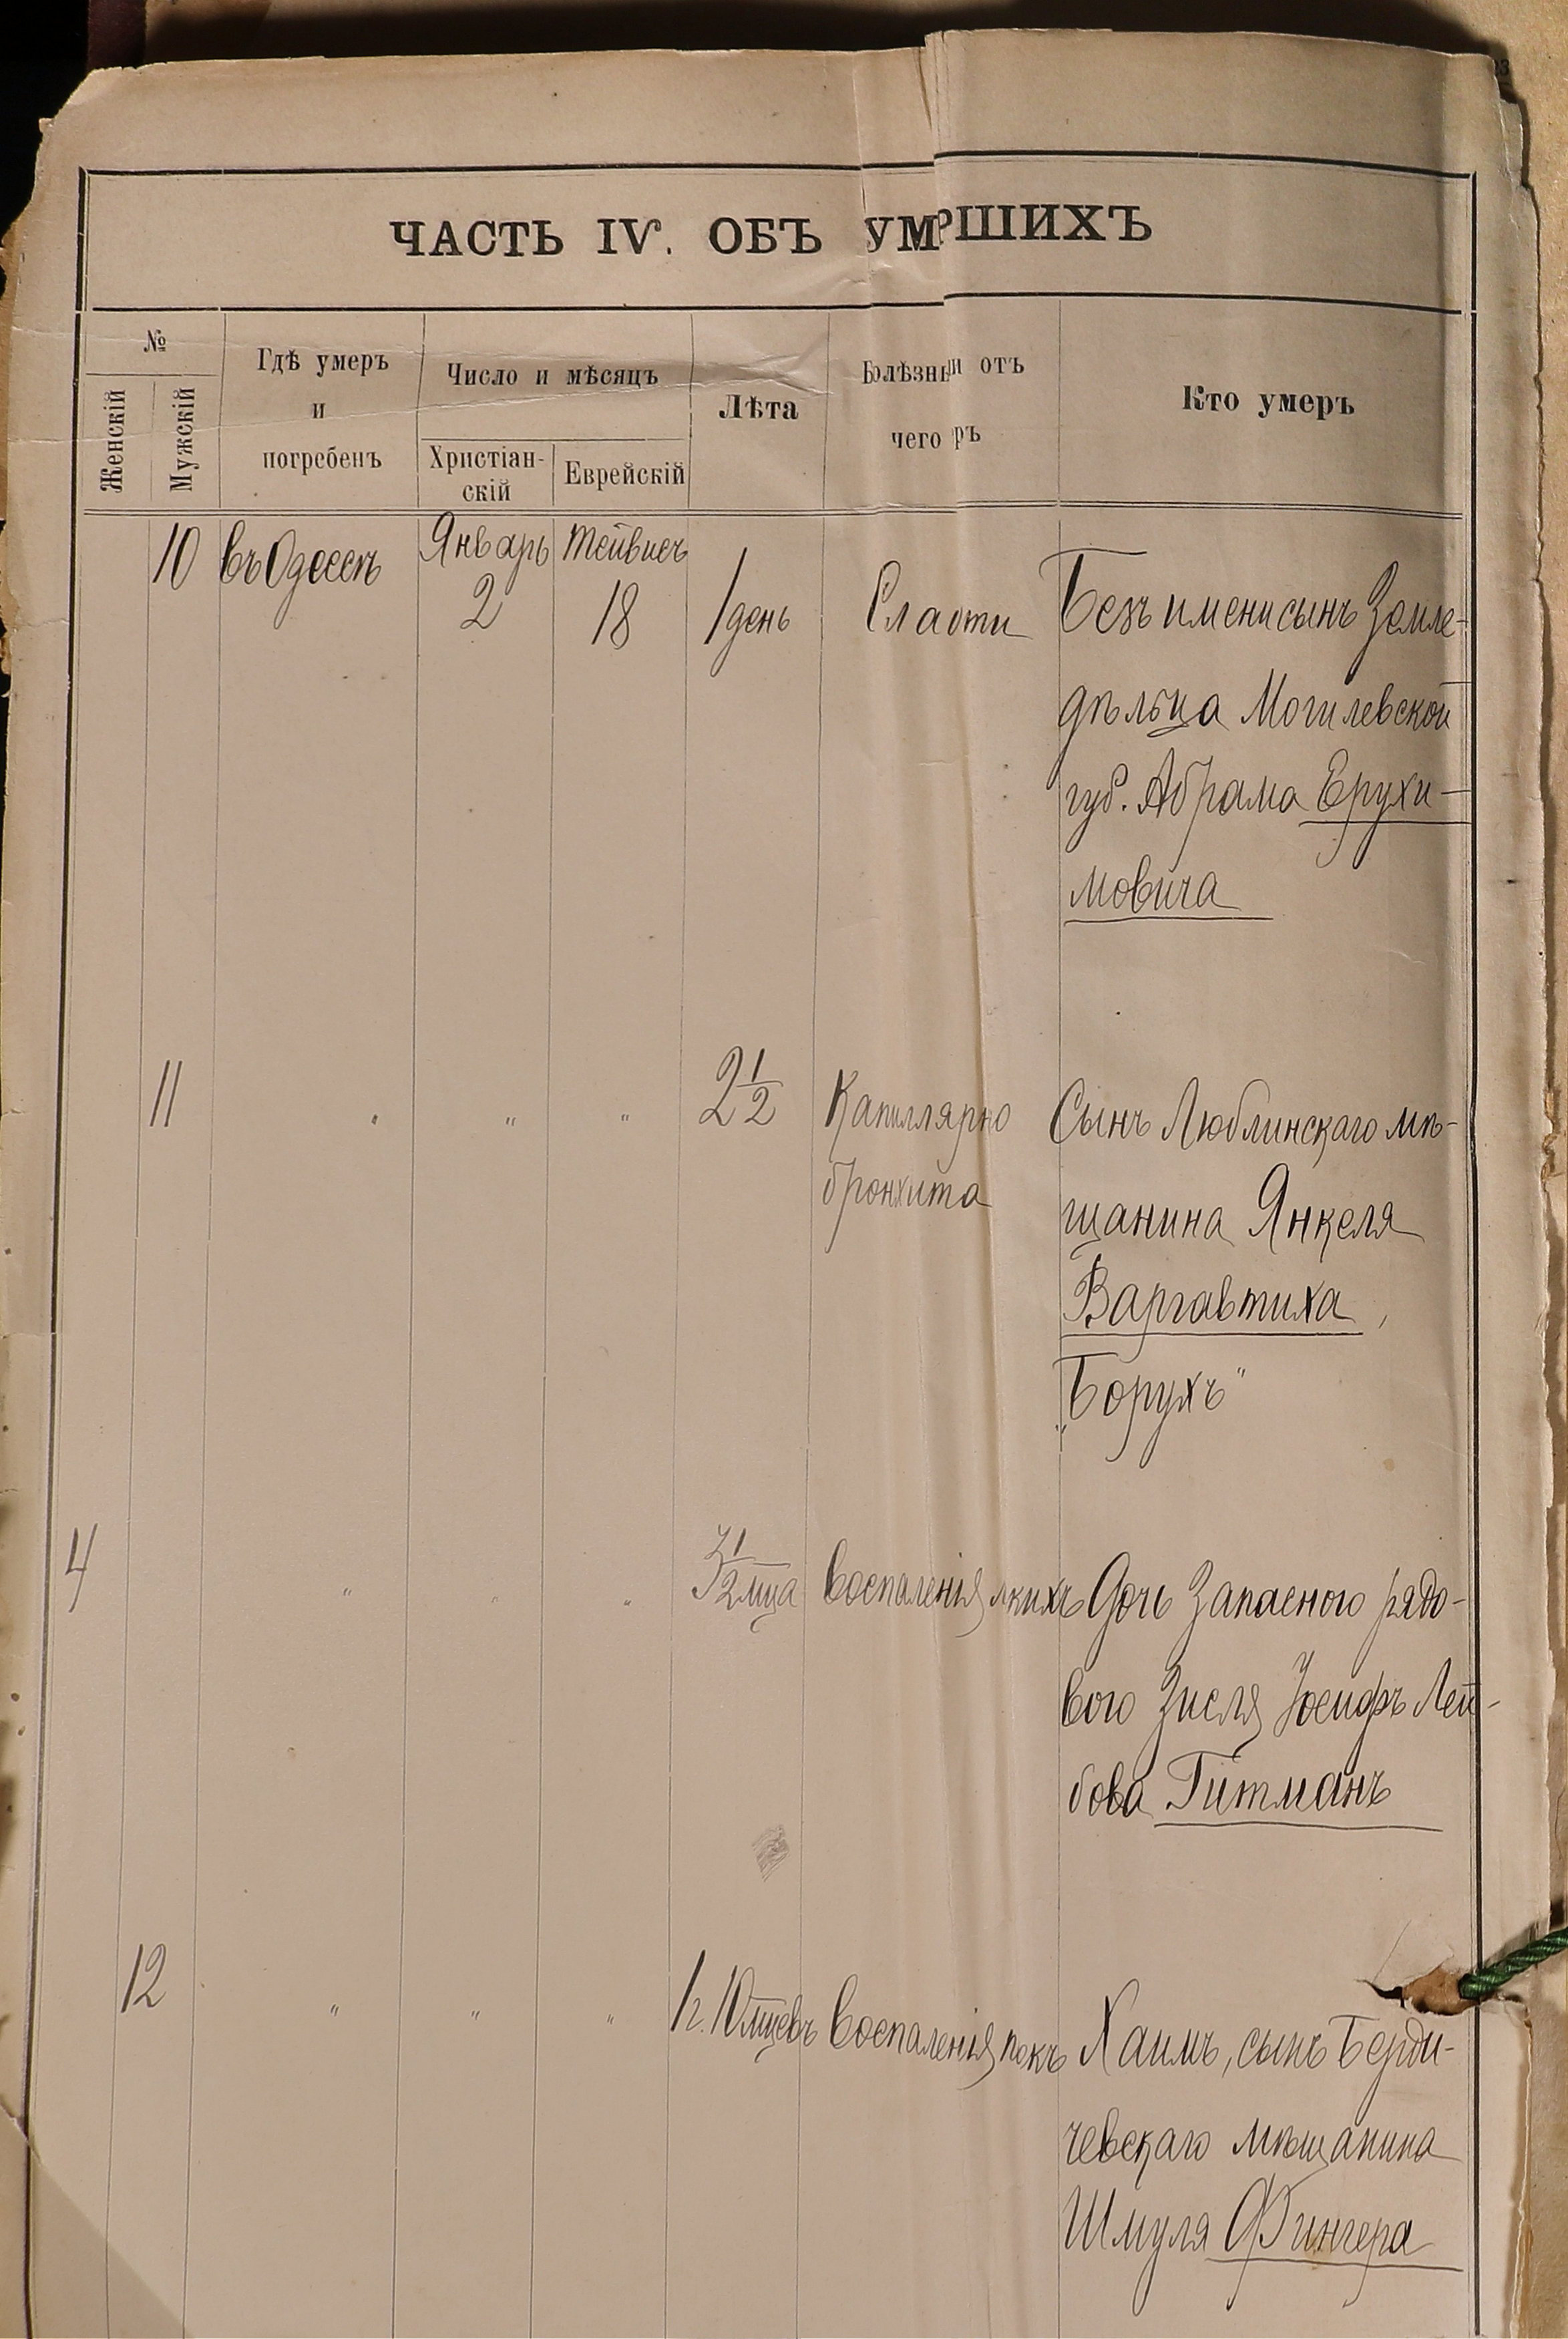 ЧАСТЬ IV. ОБЪ УМРШИХЪ
№
Женскій
Мужскій
Гдѣ умеръ
и
погребенъ
Число и мѣсяцъ
Христіан-
скій
Еврейскій
Лѣта
Болѣзнь от
чего ръ
Кто умеръ
10 въ Одессѣ Январь 2 Тейвисъ 18 1 день Слабости
Безъ имени сынъ Земле-
дѣльца Могилевской
губ. Абрама Ерухи-
мовича
11 " " " 2 1/2 Капиллярно
бронхита
Сынъ Люблинскаго мѣ-
щанина Янкеля
Варгавтиха,
„Борухъ"
4 " " " 3 1/2 мца Воспаленія лкихъ
Дочь Запаснаго рядо-
вого Зисля Іосифъ Лей-
бова Гитманъ
12 " " " 1 г. 10 мцевъ Воспаленія
Хаимъ, сынъ Берди-
чевскаго мѣщанина
Шмуля Фингера